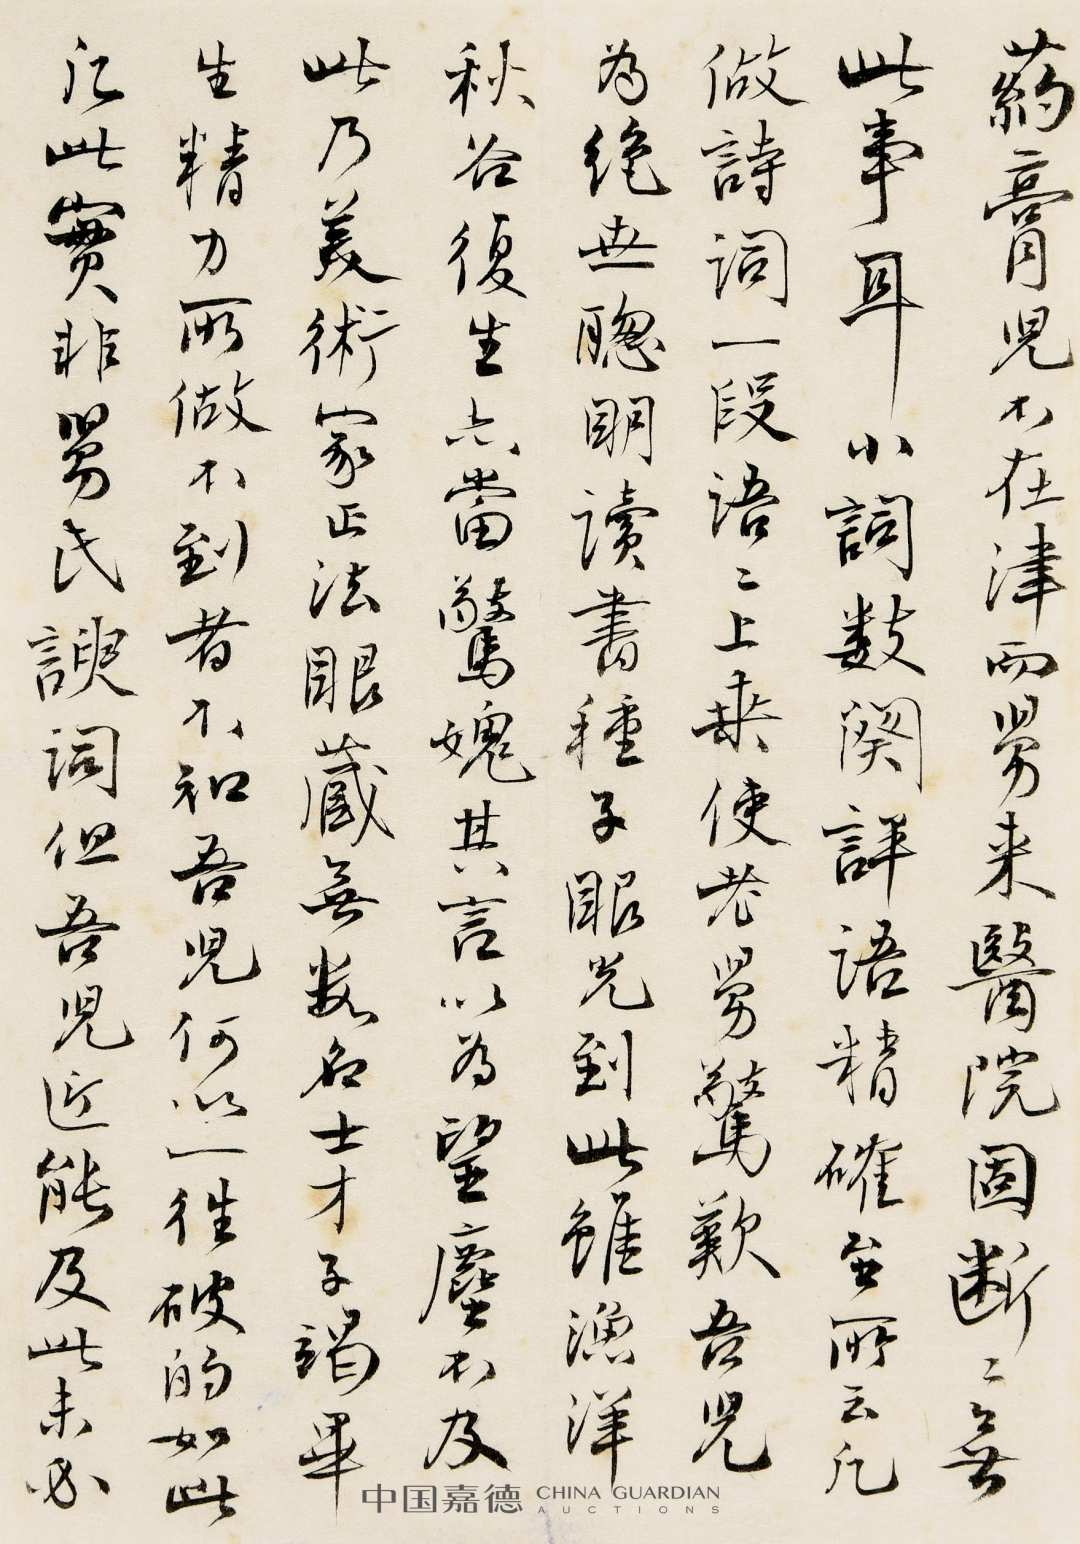 药膏兒不在津而舅来醫院固斷〻無
此事耳小詞数闋評語精確無所云凡
做詩詞一段語〻上乗使老舅驚歎吾兒
为絶世聰明讀書種子眼光到此雖漁洋
秋谷復生亦當驚媿其言以为望塵不及
此乃美術家正法眼藏無数名士才子竭畢
生精力所做不到者不知吾兒何以一往破的如此
之此實非舅氏諛詞但吾兒近能及此未必
中国嘉德 CHINA GUARDIAN
AUCTIONS